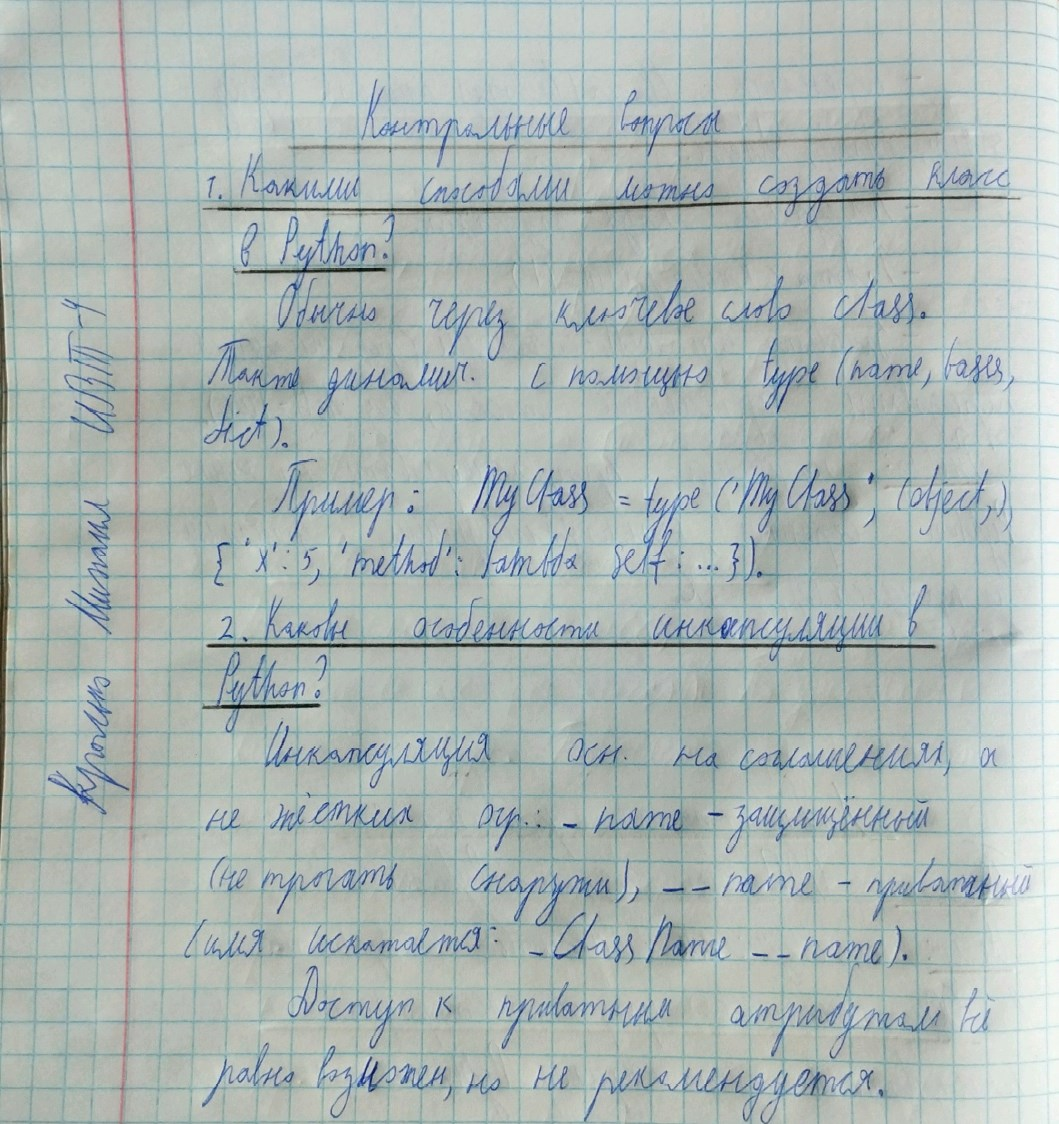 Контрольные вопросы
1. Какими способами можно создать класс
в Python?
Обычно через ключевое слово class.
Также динамич. с помощью type (name, bases,
dict).
Пример: MyClass = type ('MyClass', (object,),
{ 'x': 5, 'method': lambda self: ... }).
2. Каковы особенности инкапсуляции в
Python?
Инкапсуляция осн. на соглашениях, а
не жёстких огр.: _ name – защищённый
(не трогать снаружи), __ name – приватный
(имя искажается: _ClassName __ name).
Доступ к приватным атрибутам всё
равно возможен, но не рекомендуется.
Михаил ИВТ-4